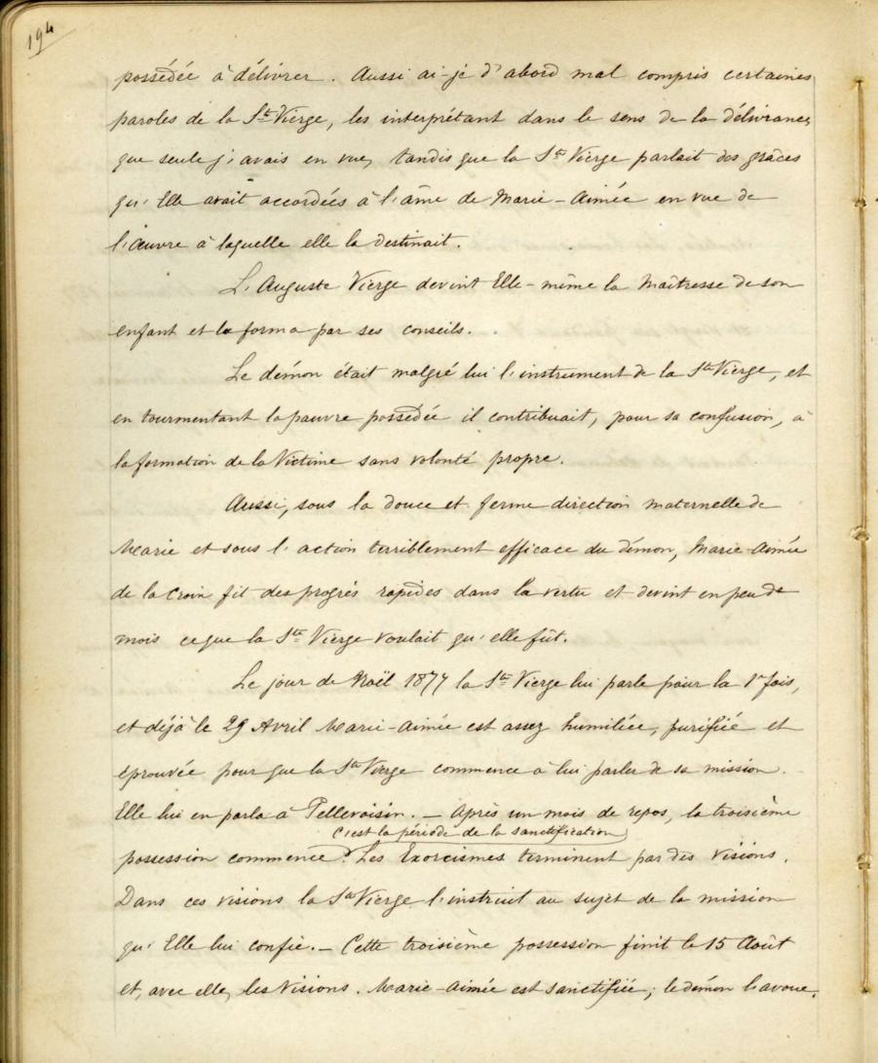 194
possédée à délivrer. Aussi ai-je d'abord mal compris certaines
paroles de la Ste Vierge, les interprétant dans le sens de la délivrance,
que seule j'avais en vue, tandis que la Ste Vierge parlait des grâces
qu'Elle avait accordées à l'âme de Marie-Aimée en vue de
l'œuvre à laquelle elle la destinait.
L'Auguste Vierge devint Elle-même la Maîtresse de son
enfant et la forma par ses conseils.
Le démon était malgré lui l'instrument de la Ste Vierge, et
en tourmentant la pauvre possédée il contribuait, pour sa confusion, à
la formation de la Victime sans volonté propre.
Aussi, sous la douce et ferme direction maternelle de
Marie et sous l'action terriblement efficace du démon, Marie-Aimée
de la Croix fit des progrès rapides dans la vertu et devint en peu de
mois ce que la Ste Vierge voulait qu'elle fût.
Le jour de Noël 1877 la Ste Vierge lui parle pour la 1re fois,
et déjà le 29 Avril Marie-Aimée est assez humiliée, purifiée et
éprouvée pour que la Ste Vierge commence à lui parler de sa mission.
Elle lui en parla à Pellevoisin. — Après un mois de repos, la troisième
C'est la période de la sanctification
possession commence. Les Exorcismes terminent par des visions.
Dans ces visions la Ste Vierge l'instruit au sujet de la mission
qu'Elle lui confie. — Cette troisième possession finit le 15 Août
et, avec elle, les Visions. Marie-Aimée est sanctifiée; le démon l'avoue.